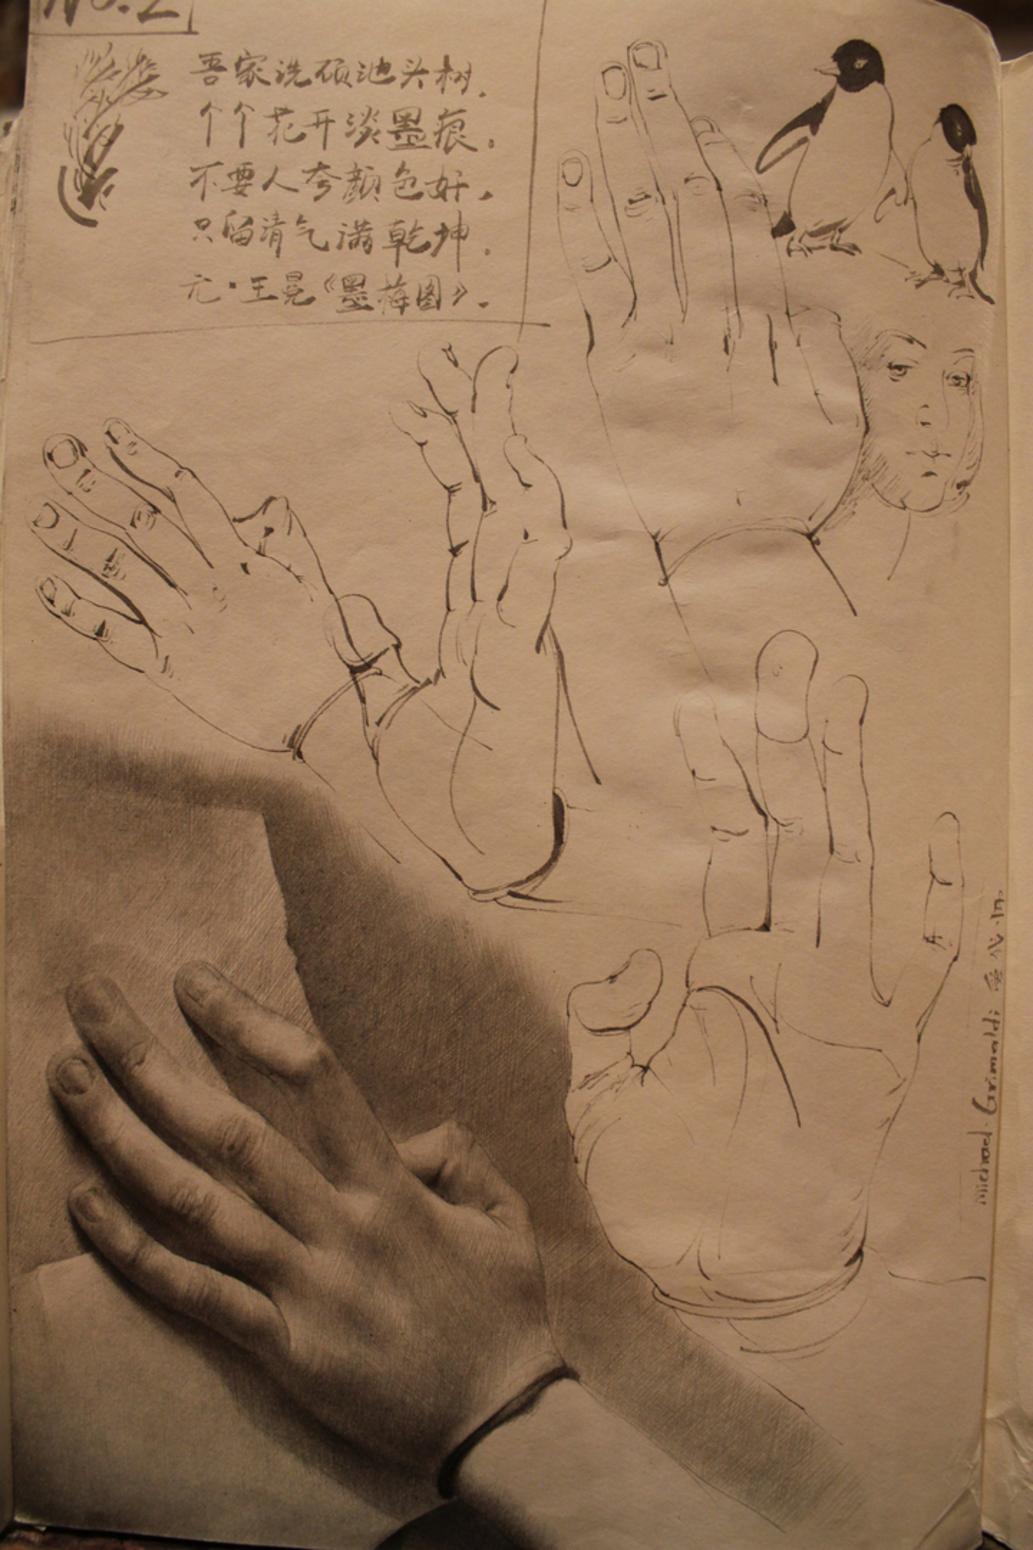 No.2
吾家洗砚池头树.
个个花开淡墨痕.
不要人夸颜色好.
只留清气满乾坤.
元·王冕《墨梅图》.
michael. Grimaldi